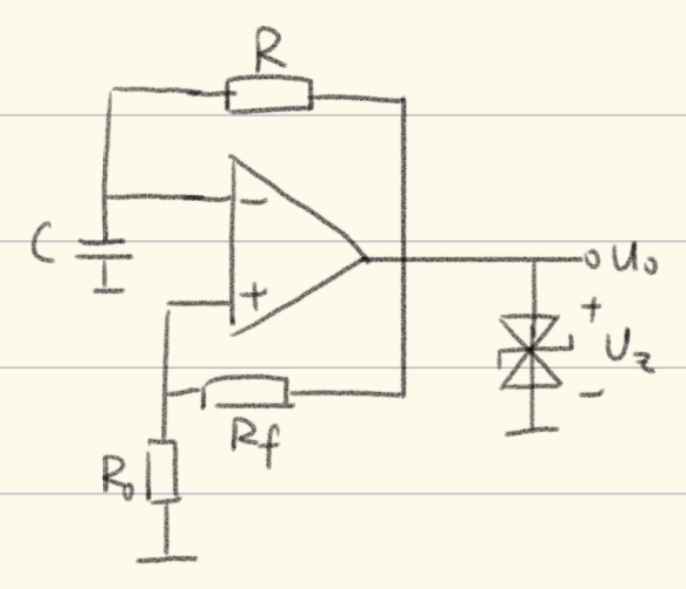 R
C
-
+
uo
+
Uz
-
Rf
Ro